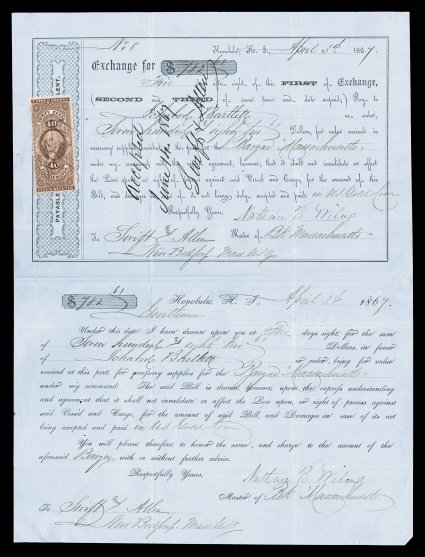 No. 8 Honolulu, H. I., April 3d 1867.
Exchange for $782 61
Five days after sight of this FIRST of Exchange,
SECOND and THIRD of same tenor and date unpaid,) Pay to
Bartlett or order,
Seven hundred & eighty two Dollars, for value received in
necessary supplies for the Barque Massachusetts
under my
the Lien upon, or right of process against said Vessel and Cargo, for the amount of said
Bill, and Damages in case of its not being duly accepted and paid in U.S. Gold Coin
Respectfully Yours, Nathan B Wilcox
Master of Bk Massachusetts
To Swift & Allen
New Bedford Mass
PAYABLE
40
Accepted
1867
Swift & Allen
$782 61 Honolulu, H. I., April 3d 1867.
Gentlemen
Under this date I have drawn upon you at Five days sight, for the sum
of Seven hundred & eighty two 61 Dollars, in favor
of Bartlett or order, being for value
received at this port, for necessary supplies for the Barque Massachusetts
under my command. The said Bill is drawn, however, upon the express understanding
and agreement that it shall not invalidate or affect the Lien upon, or right of process against
said Vessel and Cargo, for the amount of said Bill, and Damages in case of its not
being accepted and paid in U.S. Gold Coin
You will please, therefore, to honor the same, and charge to the account of the
aforesaid Barque with or without further advice.
Respectfully Yours,
Nathan B Wilcox
Master of Bk Massachusetts
To Swift & Allen
New Bedford Mass